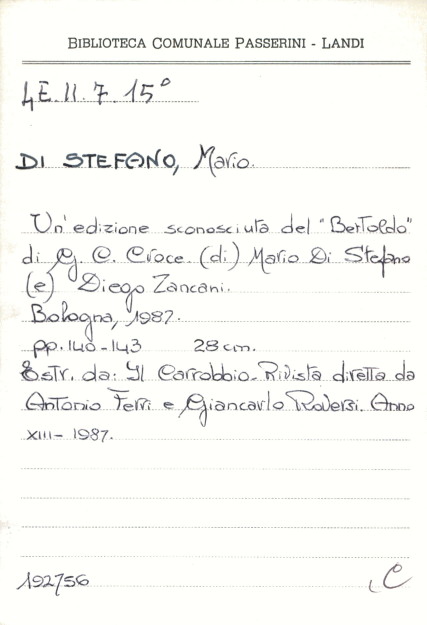 BIBLIOTECA COMUNALE PASSERINI - LANDI
4E.II.7.15°
DI STEFANO, Mario.
Un'edizione sconosciuta del "Bertoldo"
di G. C. Croce (di) Mario Di Stefano
(e) Diego Zancani.
Bologna, 1987.
pp. 140-143 28 cm.
Estr. da: Il Carrobbio. Rivista diretta da
Antonio Ferri e Giancarlo Roversi. Anno
XIII - 1987.
192756
C